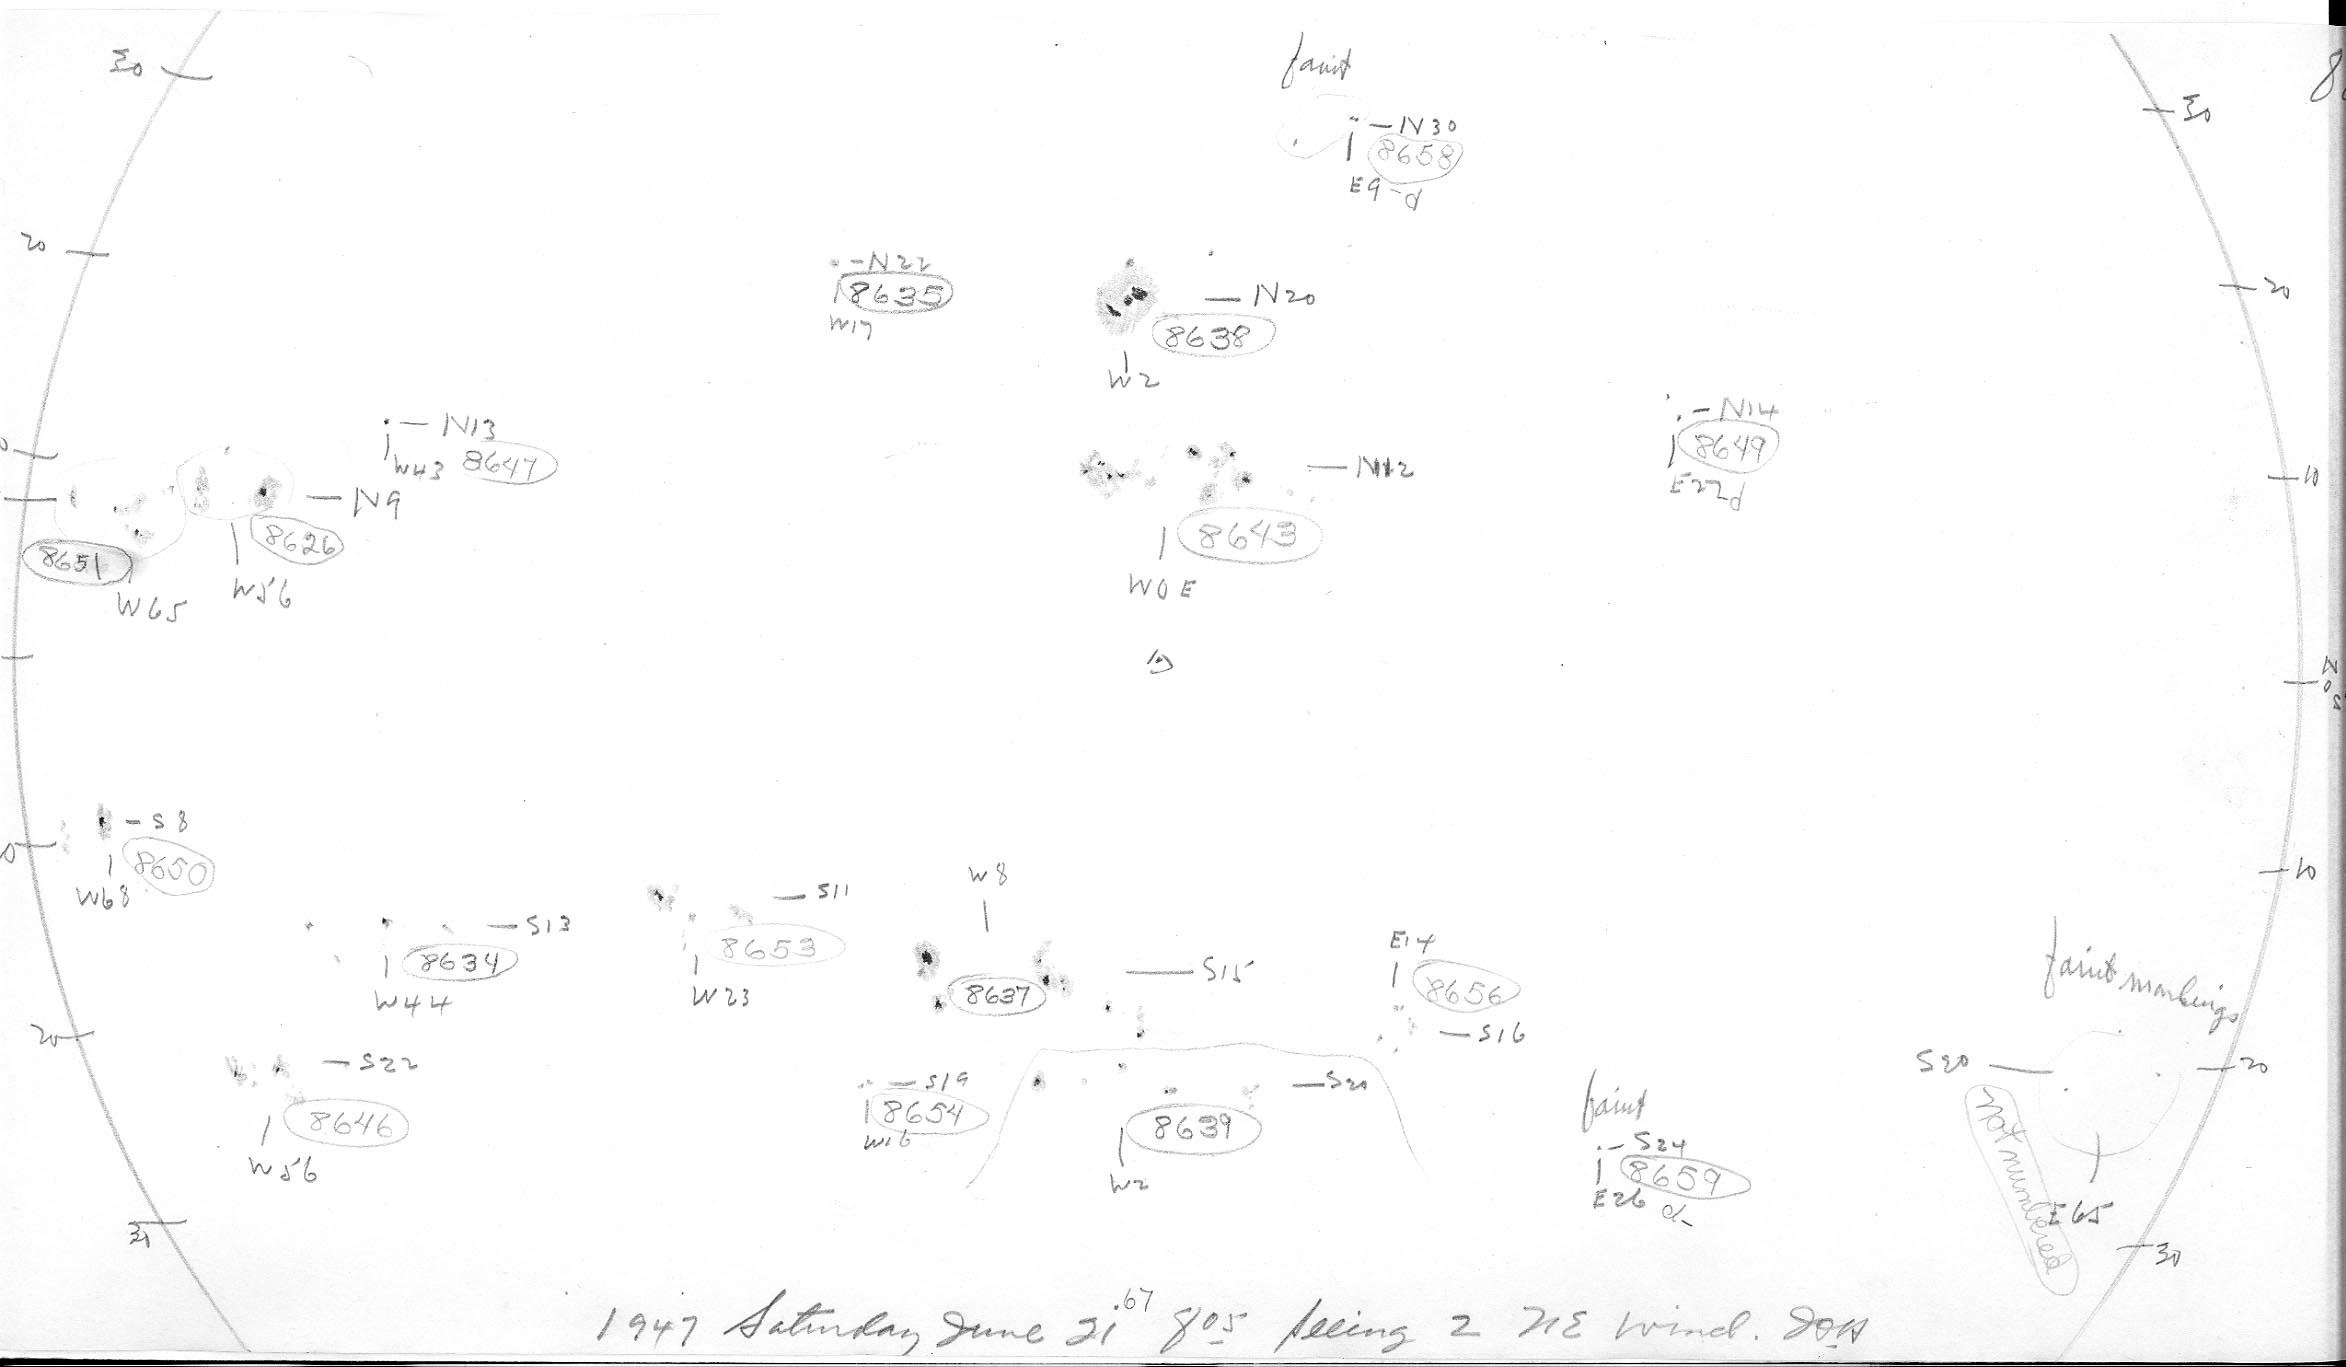 30
faint
30
N30
8658
E9-d
20
N22
8635
W17
N20
8638
W2
20
N13
W43 8647
N14
8649
E22d
N12
10
N9
8651
8626
W65
W56
8643
W0E
N
0
S
S8
8650
W68
10
W8
S11
S13
8634
W44
8653
W23
8637
S15
E14
8656
S16
faint markings
20
S22
8646
W56
S19
8654
W16
S20
8639
W2
faint
S24
8659
E26 d
S20
20
Not numbered
E65
30
1947 Saturday June 21.67 805 seeing 2 NE wind.